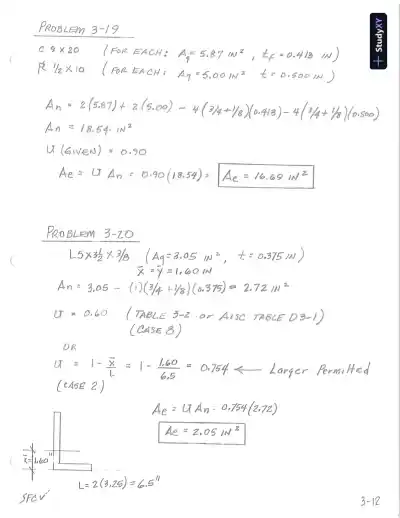 PROBLEM 3-19
C 9 X 20 (FOR EACH: Ag = 5.87 IN², tF = 0.413 IN)
PL 1/2 X 10 (FOR EACH: Ag = 5.00 IN² t = 0.500 IN)
An = 2(5.87) + 2(5.00) - 4(3/4 + 1/8)(0.413) - 4(3/4 + 1/8)(0.500)
An = 18.54 IN²
U (GIVEN) = 0.90
Ae = U An = 0.90(18.54) = Ae = 16.69 IN²
PROBLEM 3-20
L5 X 3½ X 3/8 (Ag = 3.05 IN², t = 0.375 IN)
x̄ = ȳ = 1.60 IN
An = 3.05 - (1)(3/4 + 1/8)(0.375) = 2.72 IN²
U = 0.60 (TABLE 3-2 or AISC TABLE D3-1)
(CASE 8)
OR
U = 1 - x̄/L = 1 - 1.60/6.5 = 0.754 ← Larger Permitted
(CASE 2)
Ae = U An = 0.754(2.72)
Ae = 2.05 IN²
x̄ = 1.60"
L = 2(3.25) = 6.5"
SFCV
3-12
StudyXY